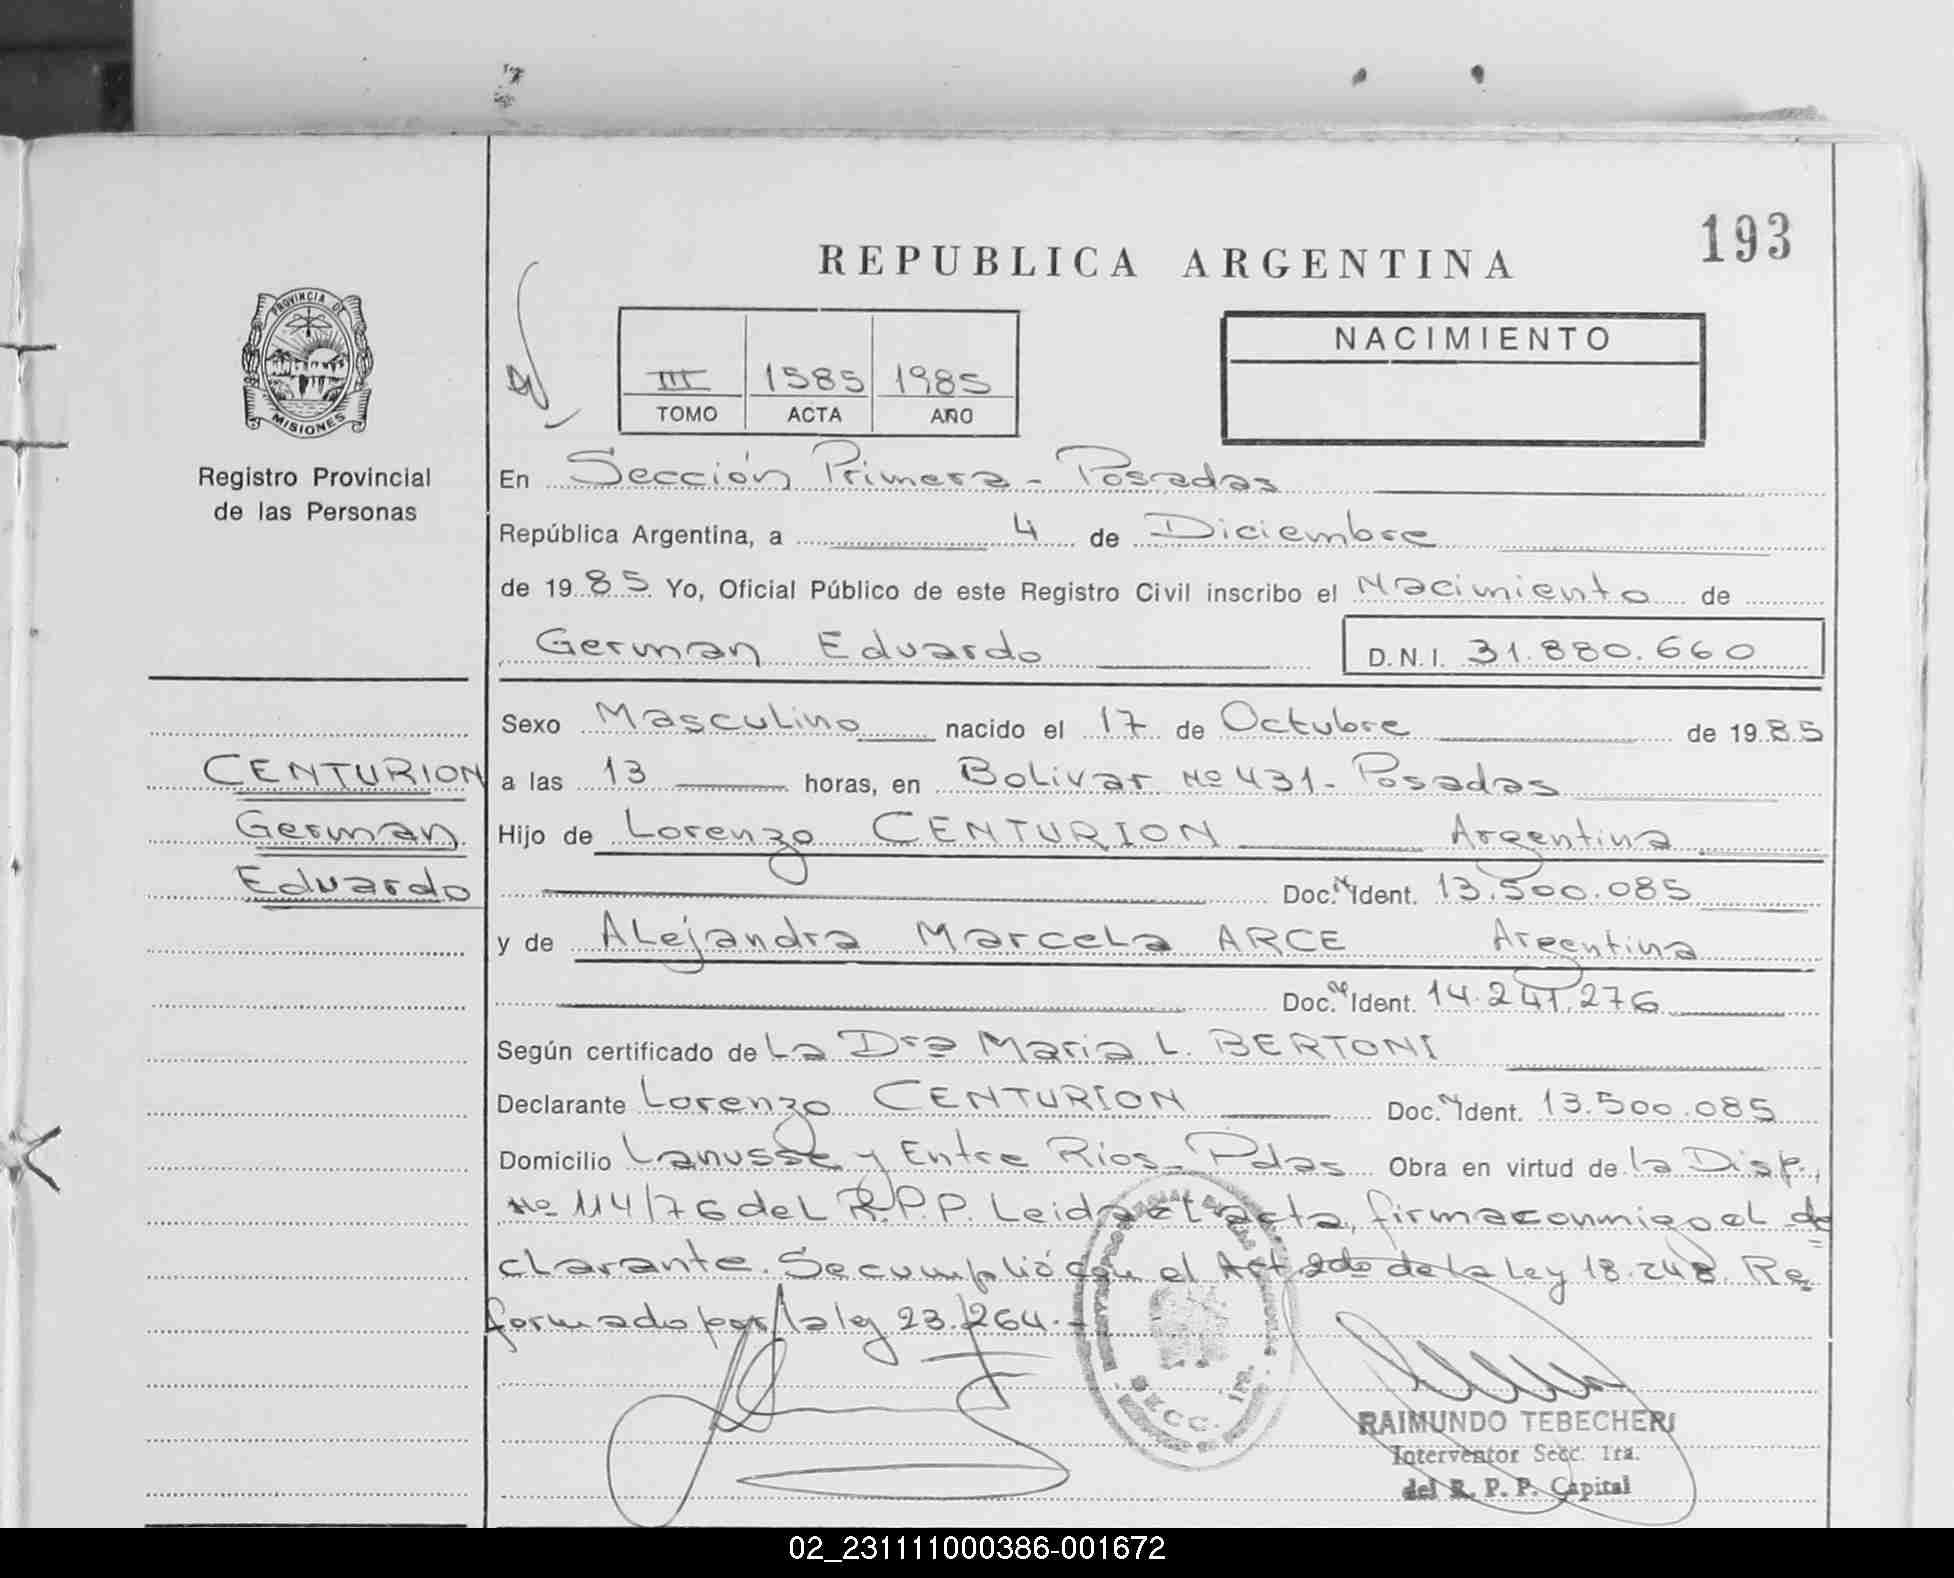 193
REPUBLICA ARGENTINA
PROVINCIA DE
MISIONES
Registro Provincial
de las Personas
III 1585 1985
TOMO ACTA AÑO
NACIMIENTO
En Sección Primera - Posadas
República Argentina, a 4 de Diciembre
de 1985 Yo, Oficial Público de este Registro Civil inscribo el Nacimiento de
German Eduardo D.N.I. 31.880.660
Sexo Masculino nacido el 17 de Octubre de 1985
CENTURION
German
Eduardo
a las 13 horas, en Bolivar Nº 431 - Posadas
Hijo de Lorenzo CENTURION Argentina
Doc. Nº Ident. 13.500.085
y de Alejandra Marcela ARCE Argentina
Doc. Nº Ident. 14.241.276
Según certificado de La Dra Maria L. BERTONI
Declarante Lorenzo CENTURION Doc. Nº Ident. 13.500.085
Domicilio Lanusse y Entre Rios - Pdas Obra en virtud de la Disp.
Nº 114/76 del R.P.P. Leida el acta, firma conmigo el de
clarante. Se cumplió con el Art 2do de la Ley 18.248 Re
formado por la ley 23.264.-
SECC. 1ra.
RAIMUNDO TEBECHERI
Interventor Secc. 1ra.
del R. P. P. Capital
02_231111000386-001672